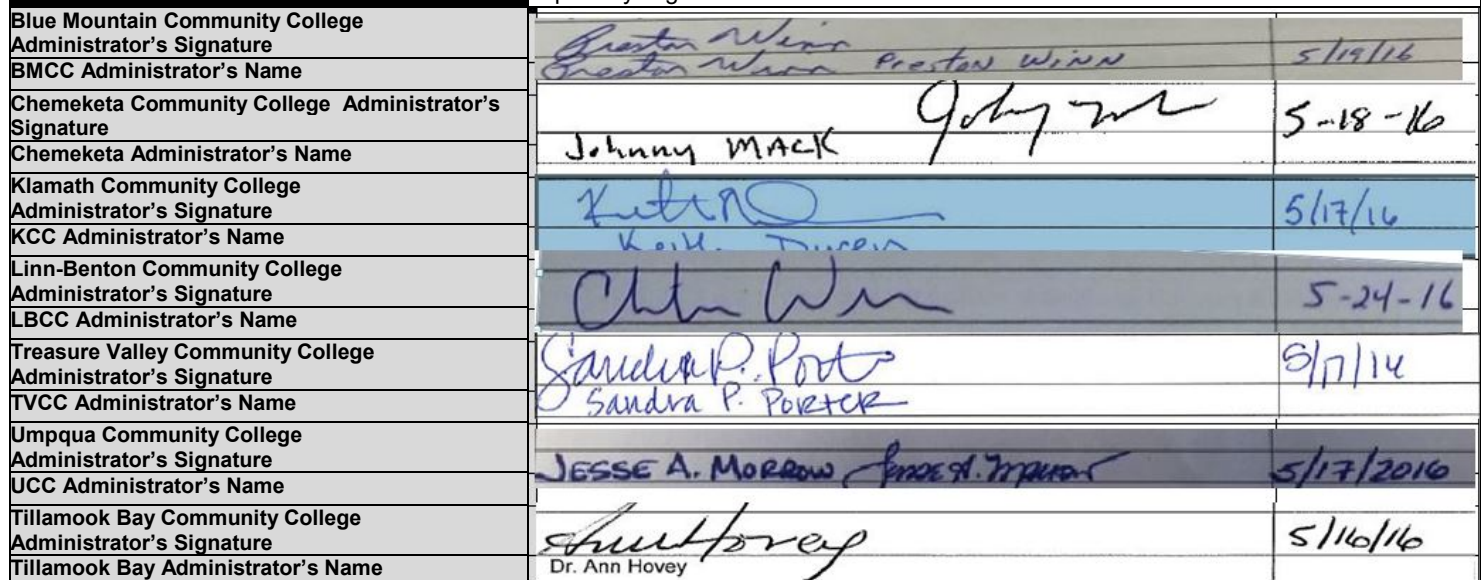 Blue Mountain Community College
Administrator's Signature
Preston Winn
BMCC Administrator's Name
Preston Winn Preston Winn 5/19/16
Chemeketa Community College Administrator's
Signature
5-18-16
Chemeketa Administrator's Name
Johnny Mack
Klamath Community College
Administrator's Signature
5/17/16
KCC Administrator's Name
Linn-Benton Community College
Administrator's Signature
5-24-16
LBCC Administrator's Name
Treasure Valley Community College
Administrator's Signature
Sandra P. Porter
TVCC Administrator's Name
Sandra P. Porter
Umpqua Community College
Administrator's Signature
Jesse A. Morrow Jesse A. Morrow 5/17/2016
UCC Administrator's Name
Tillamook Bay Community College
Administrator's Signature
Ann Hovey 5/16/16
Tillamook Bay Administrator's Name
Dr. Ann Hovey